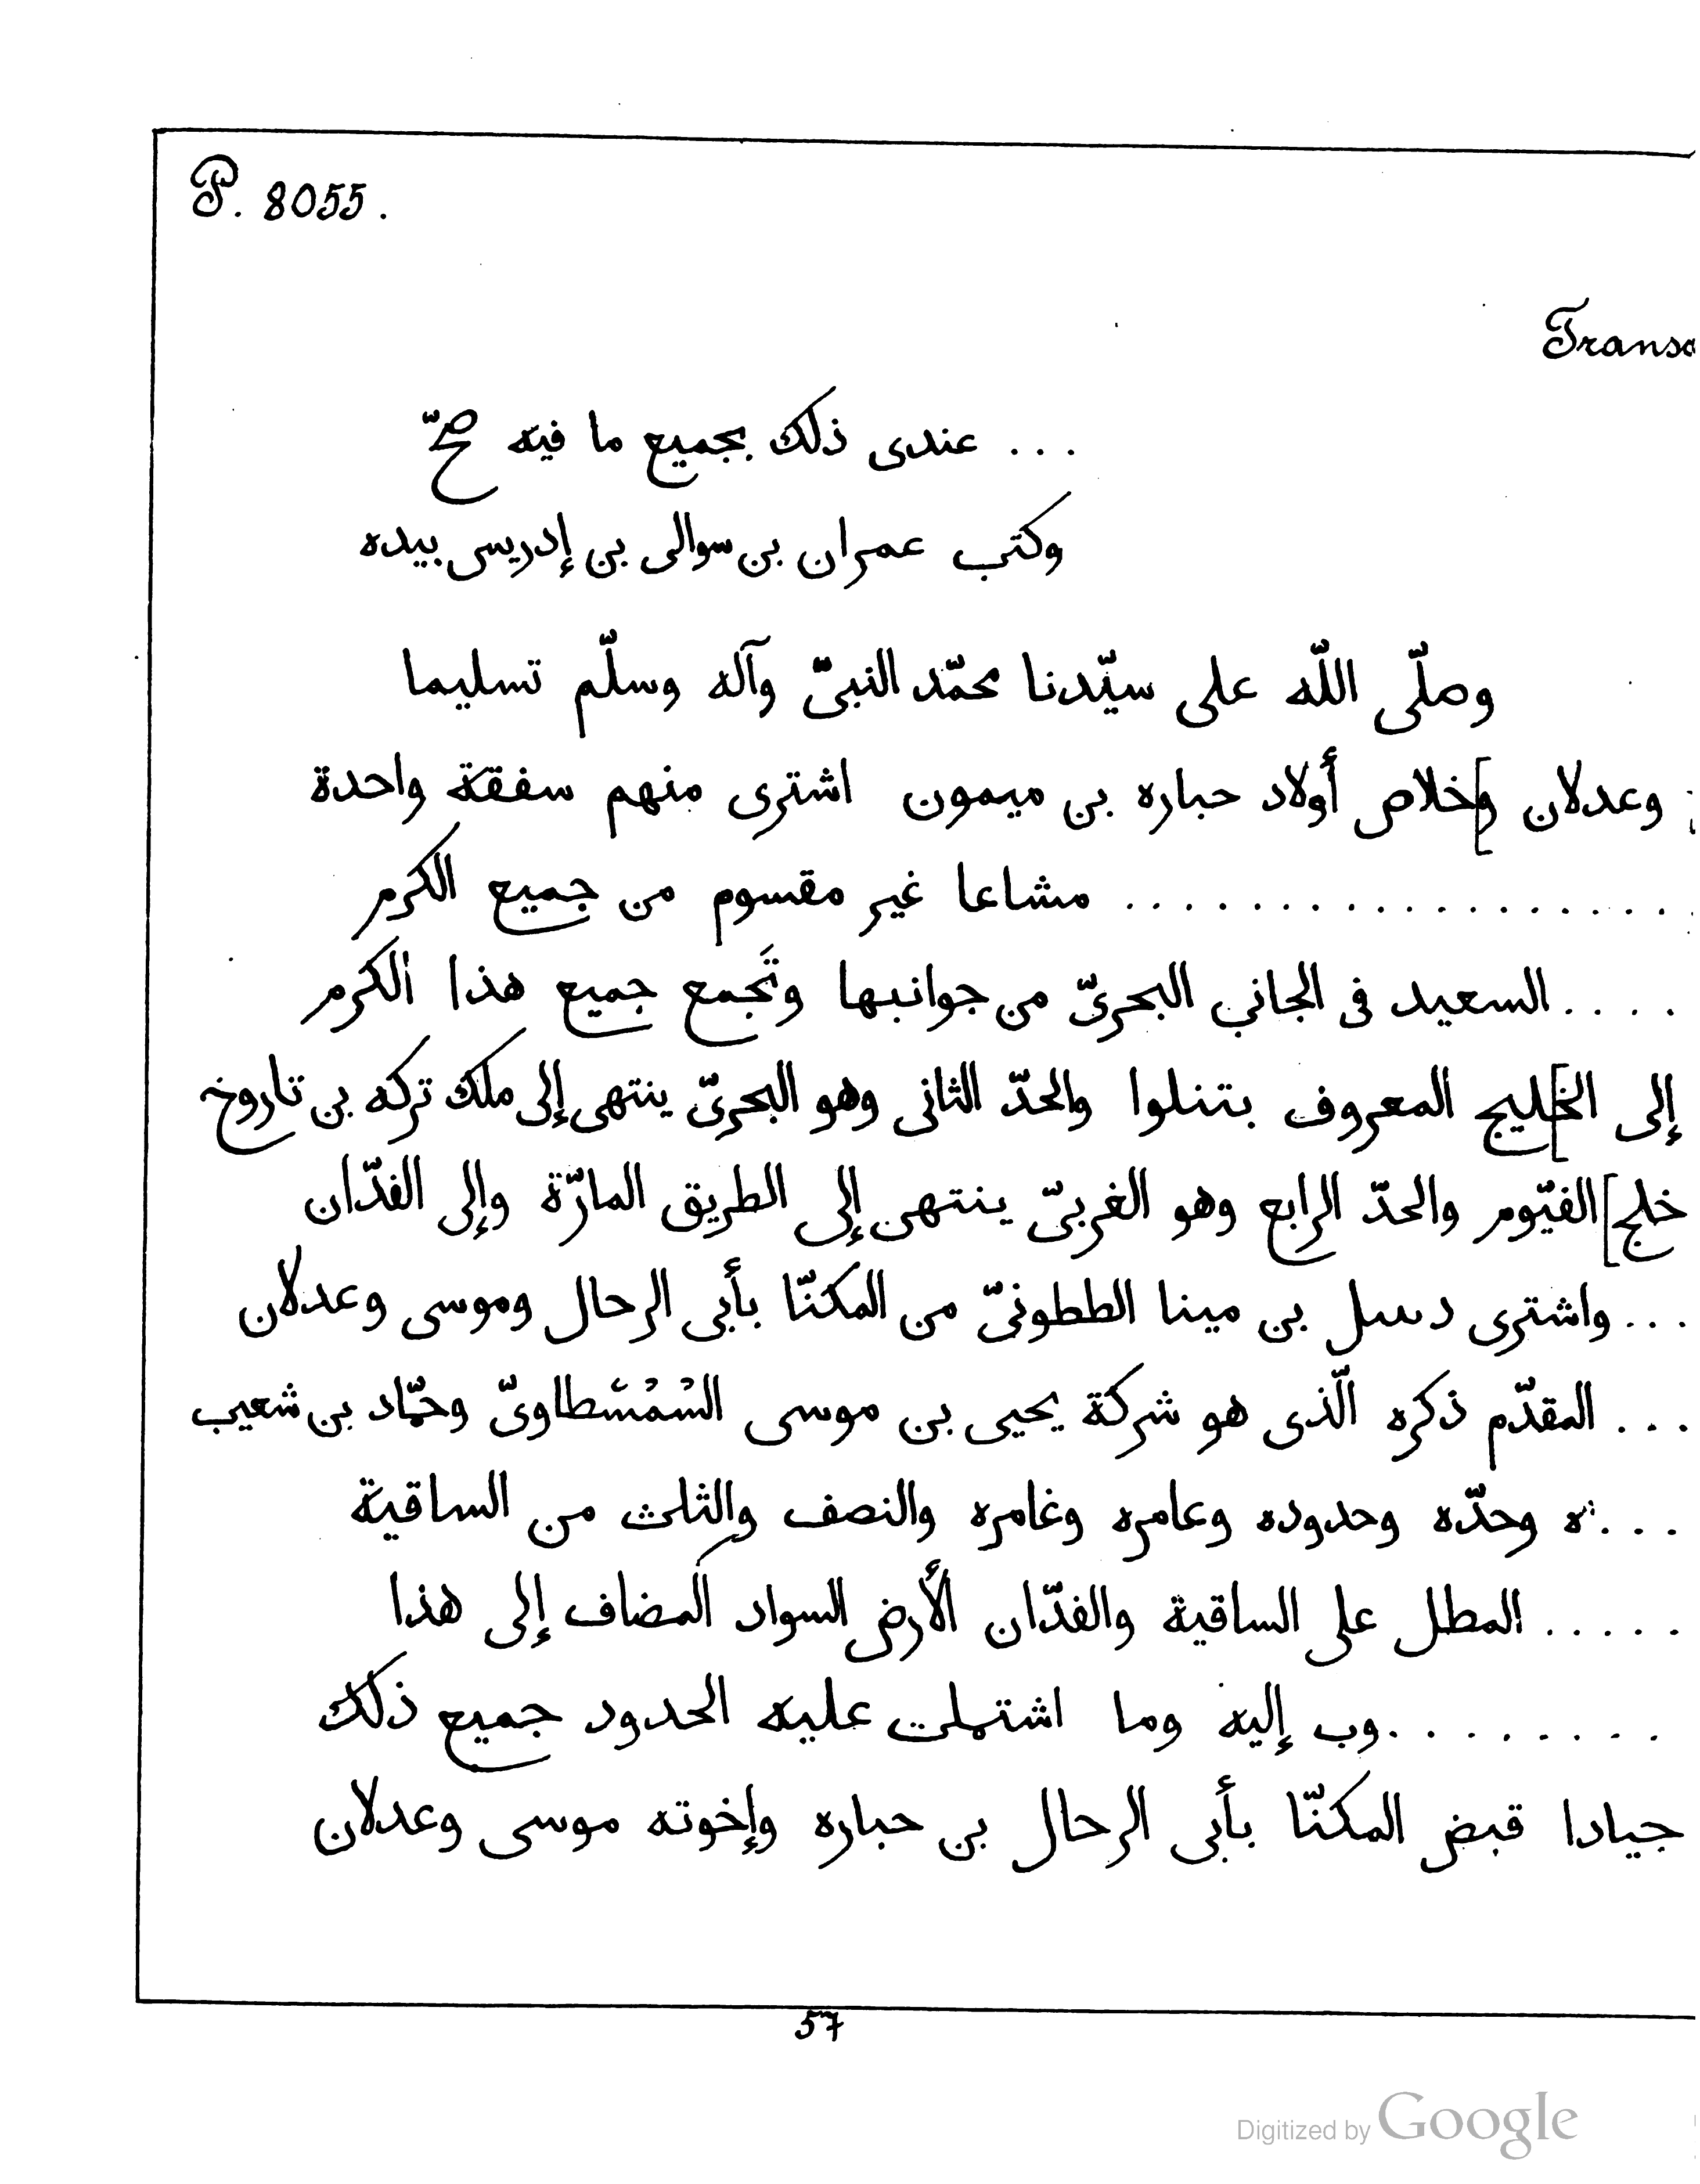 P. 8055.
Transc
... عندى ذلك بجميع ما فيه صحّ
وكتب عمران بن سوالى بن إدريس بيده
وصلّى اللّه على سيّدنا محمّد النبىّ وآله وسلّم تسليما
وعدلان و]خلاص أولاد حباره بن ميمون اشترى منهم سفقة واحدة
.................. مشاعا غير مقسوم من جميع الكرم
.... السعيد فى الجانب البحرىّ من جوانبها وتَجمع جميع هذا الكرم
إلى الخ]ليج المعروف بتنلوا والحدّ الثانى وهو البحرىّ ينتهى إلى ملك تركه بن تاروخ
خلج] الفيّوم والحدّ الرابع وهو الغربىّ ينتهى إلى الطريق المارّة وإلى الفدّان
... واشترى دسىل بن مينا الططونىّ من المكنّا بأبى الرحال وموسى وعدلان
... المقدّم ذكره الّذى هو شركة يحيى بن موسى السُمُسْطاوىّ وحمّاد بن شعيب
...ه وحدّه وحدوده وعامره وغامره والنصف والثلث من الساقية
..... المطل على الساقية والفدّان الأرض السواد المضاف إلى هذا
.........وب إليه وما اشتملت عليه الحدود جميع ذلك
جيادا قبض المكنّا بأبى الرحال بن حباره وإخوته موسى وعدلان
57
Digitized by Google